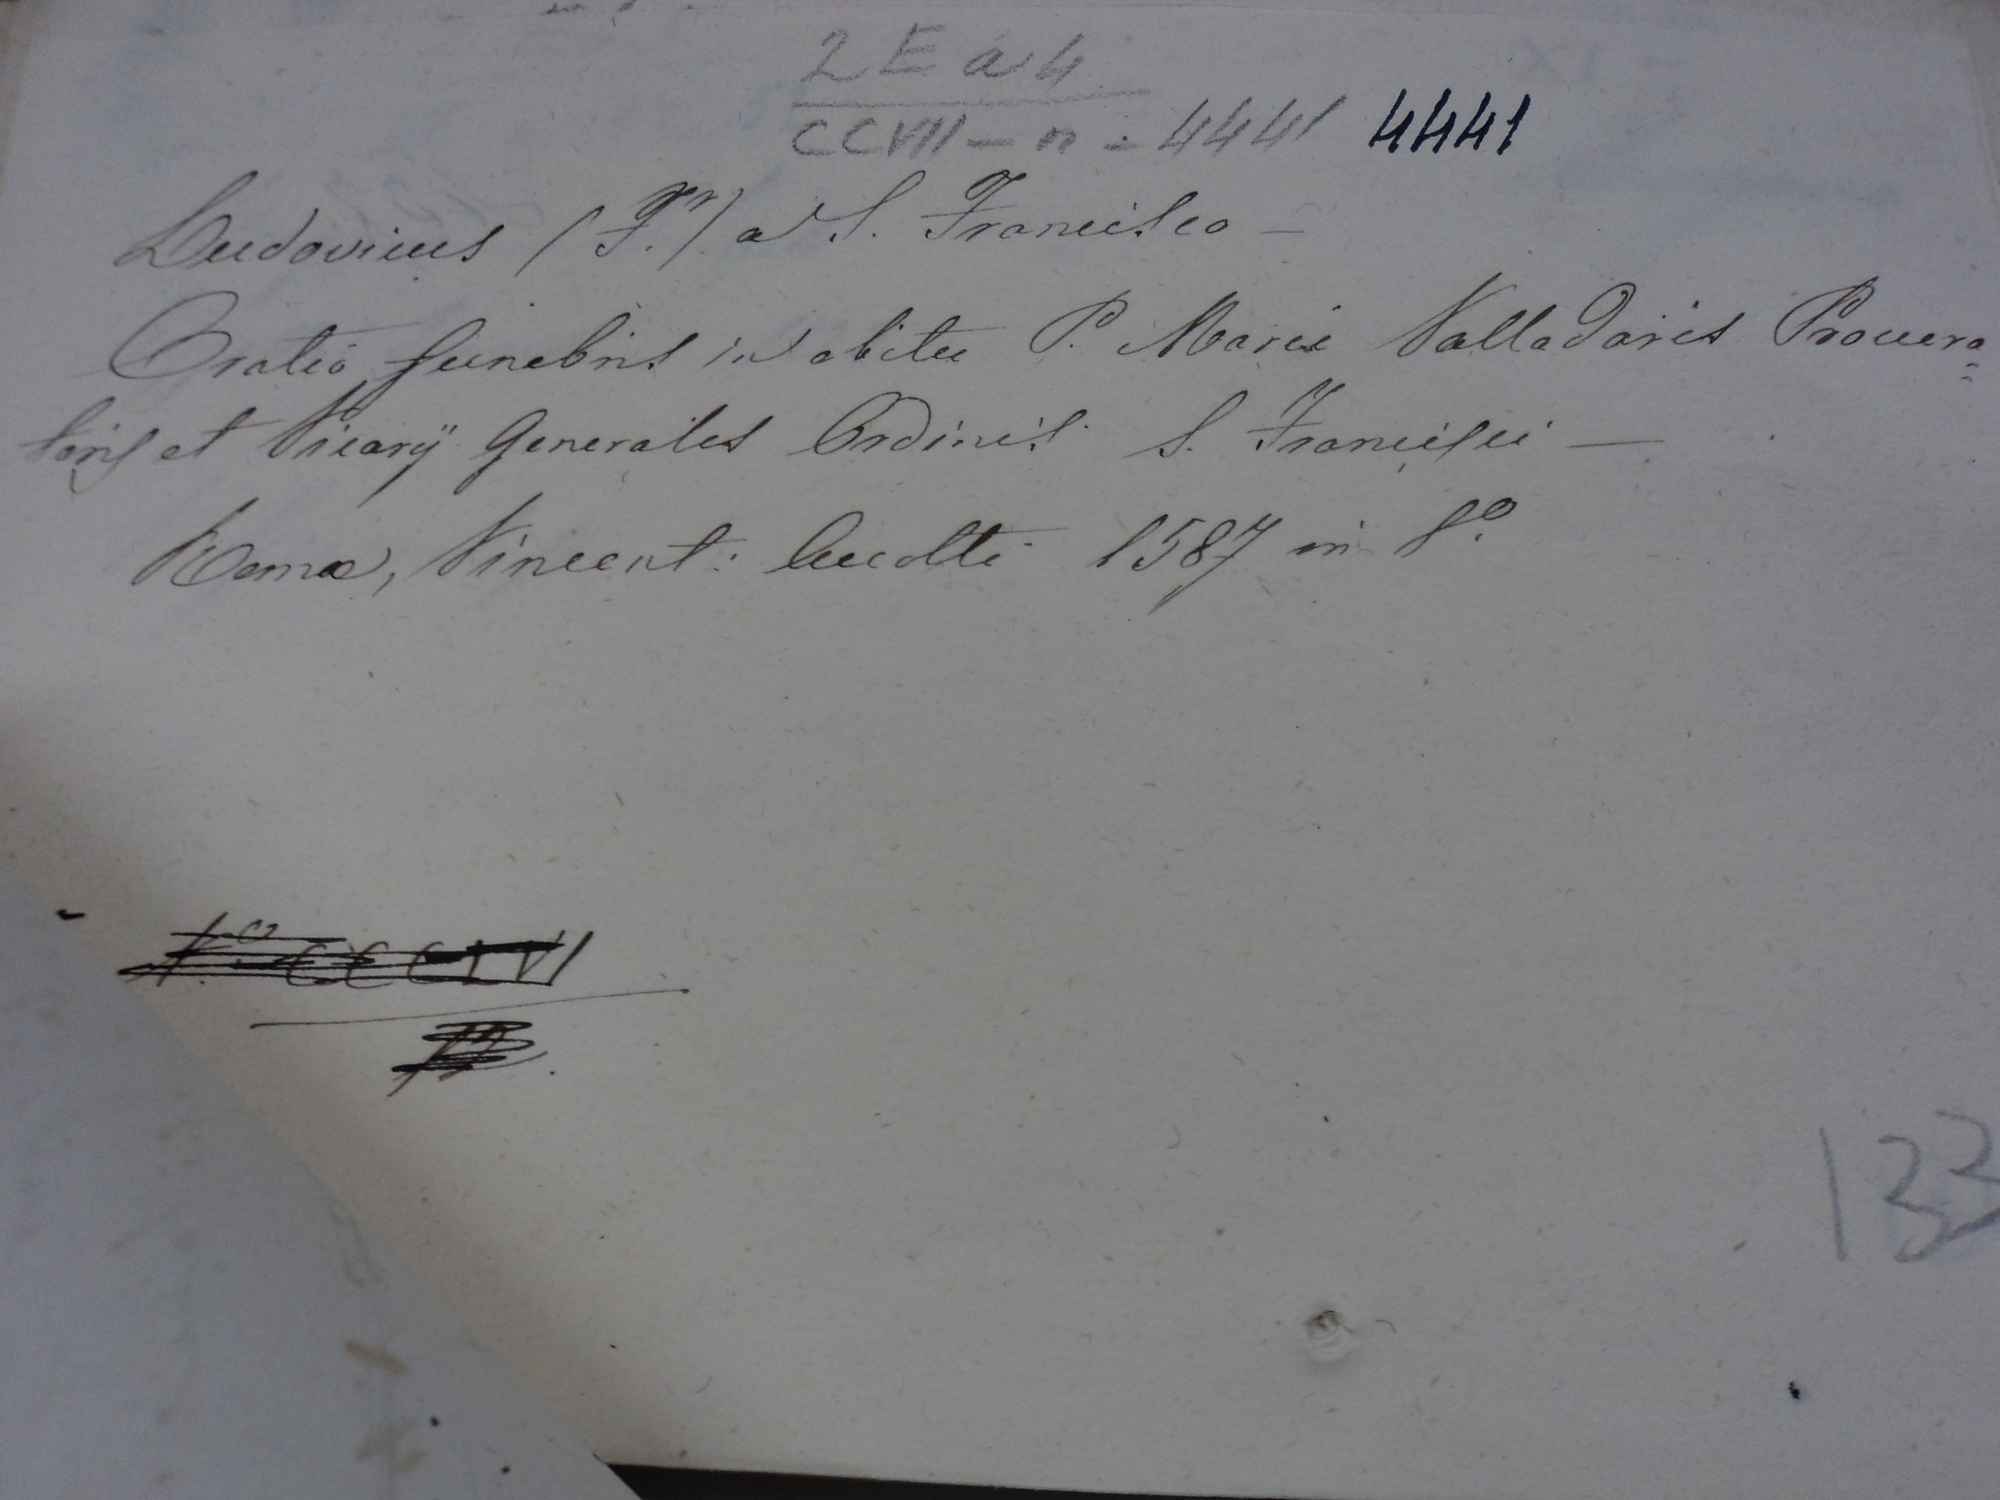 2 E a 4
CCVII - n - 4441 4441
Ludovicus (F.r) a S. Francisco -
Oratio funebris in obitu P. Marci Valladaris Procura=
toris et Vicarij Generales Ordinis S. Francisci -
Romæ, Vincent: Accolti 1587 in 8º
133